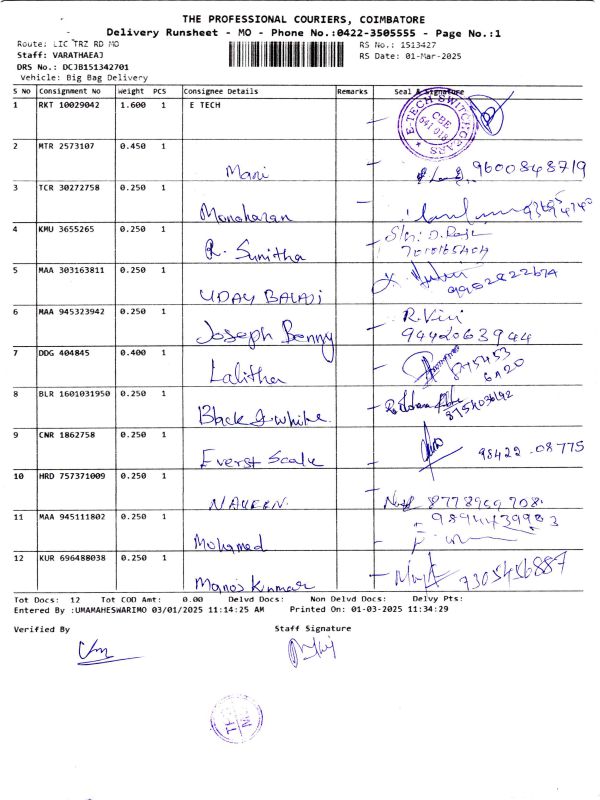 THE PROFESSIONAL COURIERS, COIMBATORE
Delivery Runsheet - MO - Phone No.:0422-3505555 - Page No.:1
Route: LIC TRZ RD MO
RS No.: 1513427
Staff: VARATHAEAJ
RS Date: 01-Mar-2025
DRS No.: DCJB151342701
Vehicle: Big Bag Delivery
S No Consignment No Weight PCS Consignee Details Remarks Seal & Signature
1 RKT 10029042 1.600 1 E TECH
E-TECH SWITCHGEARS CBE 641 018
2 MTR 2573107 0.450 1 Mani 9600848719
3 TCR 30272758 0.250 1 Manoharan
4 KMU 3655265 0.250 1 R. Sunitha
5 MAA 303163811 0.250 1 UDAY BALAJI
6 MAA 945323942 0.250 1 Joseph Benny R. Viji
9442063944
7 DDG 404845 0.400 1 Lalitha
8 BLR 1601031950 0.250 1 Black & white
9 CNR 1862758 0.250 1 Everst Scale 98422 08775
10 HRD 757371009 0.250 1 NAVEEN.
11 MAA 945111802 0.250 1 Mohamed
12 KUR 696488038 0.250 1 Manoj Kummar
Tot Docs: 12 Tot COD Amt: 0.00 Delvd Docs: Non Delvd Docs: Delvy Pts:
Entered By :UMAMAHESWARIMO 03/01/2025 11:14:25 AM Printed On: 01-03-2025 11:34:29
Verified By Staff Signature